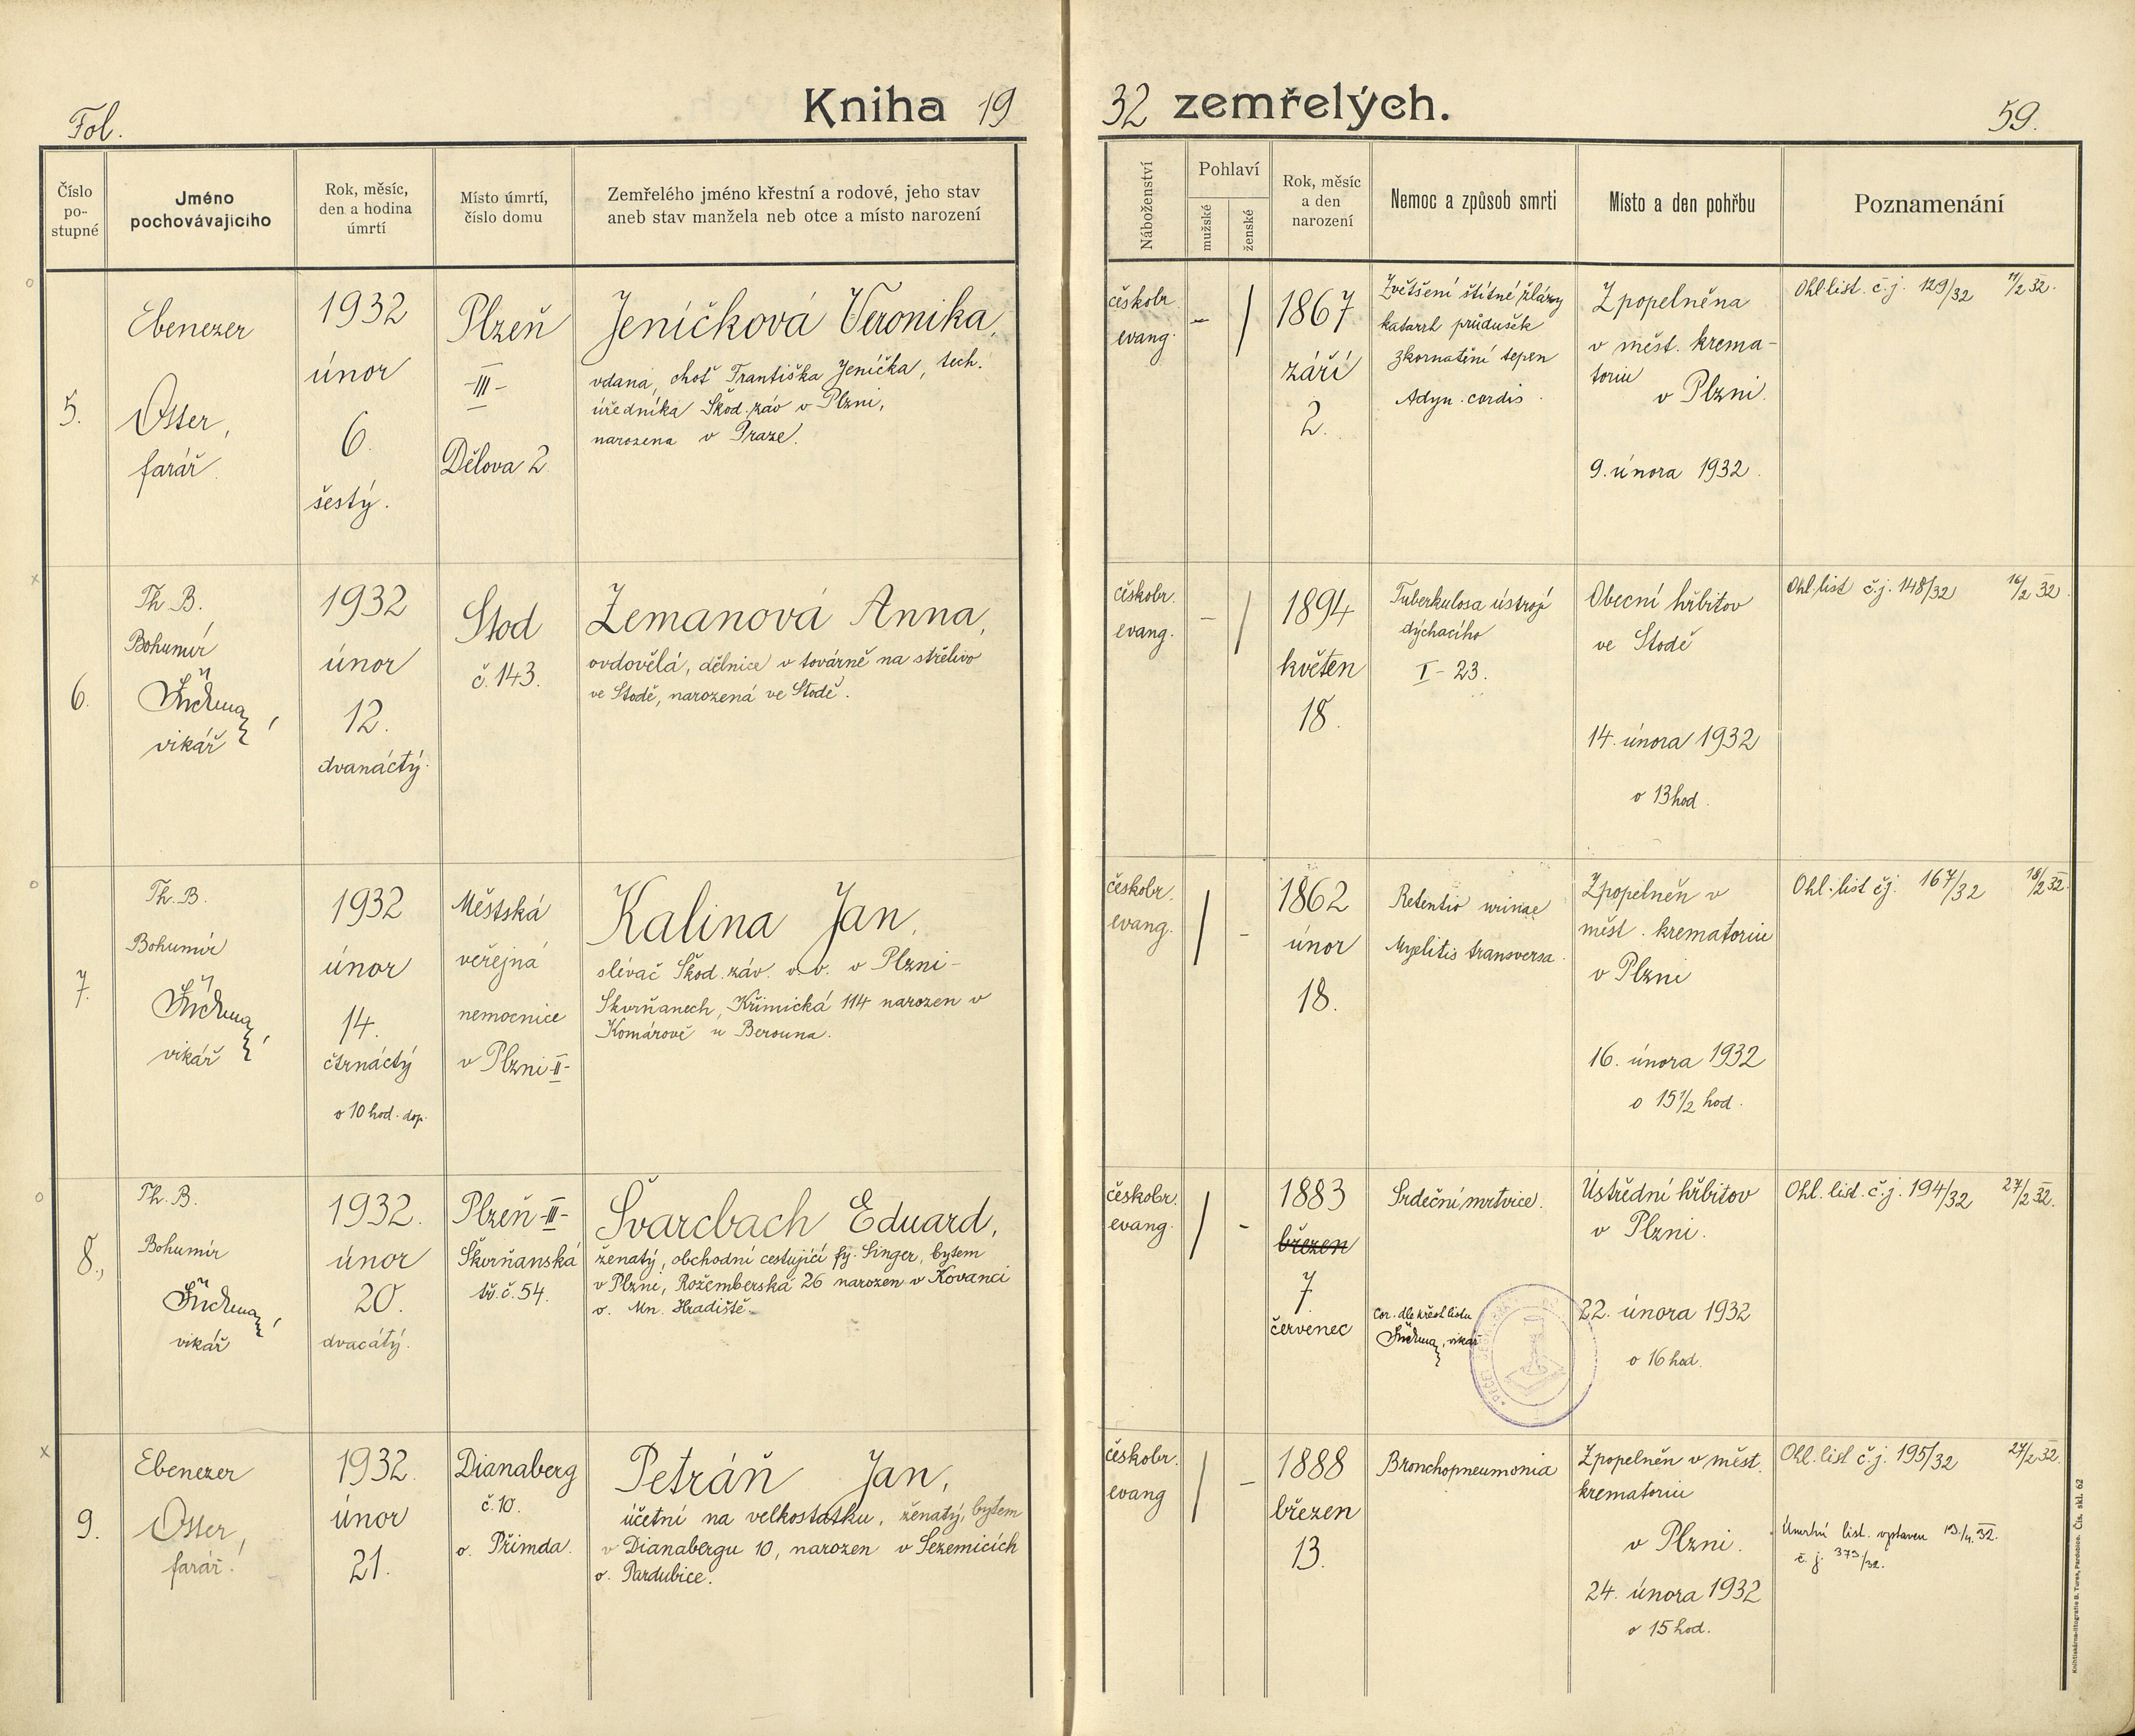 Kniha 19
32 zemřelých.
Fol.
59.
Číslo
po-
stupné
Jméno
pochovávajícího
Rok, měsíc,
den a hodina
úmrtí
Místo úmrtí,
číslo domu
Zemřelého jméno křestní a rodové, jeho stav
aneb stav manžela neb otce a místo narození
Náboženství
Pohlaví
mužské
ženské
Rok, měsíc
a den
narození
Nemoc a způsob smrti
Místo a den pohřbu
Poznamenání
5.
Ebenezer
Otter,
farář.
1932
únor
6.
šestý.
Plzeň
-III-
Dělova 2.
Jeníčková Veronika,
vdaná, choť Františka Jeníčka, tech.
úředníka Škod. záv v Plzni,
narozena v Praze.
českobr.
evang.
-
/
1867
září
2.
Zvětšení štítné žlázy
katarrh průdušek
zkornatění tepen
Adyn. cordis.
Zpopelněna
v měst. krema-
toriu
v Plzni.
9. února 1932.
Ohl. list. č.j. 129/32 11/2 32.
6.
Th. B.
Bohumír
vikář
1932
únor
12.
dvanáctý.
Stod
č. 143.
Zemanová Anna,
ovdovělá, dělnice v továrně na střelivo
ve Stodě, narozená ve Stodě.
českobr.
evang.
-
/
1894
květen
18.
Tuberkulosa ústrojí
dýchacího
I - 23.
Obecní hřbitov
ve Stodě
14. února 1932
o 13 hod.
Ohl. list č.j. 148/32 16/2 32.
7.
Th. B.
Bohumír
vikář
1932
únor
14.
čtrnáctý
o 10 hod. dop.
Městská
veřejná
nemocnice
v Plzni -II-
Kalina Jan,
slévač Škod. záv. v. v. v Plzni-
Skvrňanech, Křimická 114 narozen v
Komárově u Berouna.
českobr.
evang.
/
-
1862
únor
18.
Retentio urinae
Myelitis transversa.
Zpopelněn v
měst. krematoriu
v Plzni
16. února 1932
o 15 1/2 hod.
Ohl. list čj. 167/32 18/2 32.
8.,
Th. B.
Bohumír
vikář
1932.
únor
20.
dvacátý.
Plzeň -III-
Skvrňanská
tř. č. 54.
Švarcbach Eduard,
ženatý, obchodní cestující fy. Singer, bytem
v Plzni, Rožemberská 26 narozen v Kovanci
o. Mn. Hradiště.
českobr.
evang.
/
-
1883
březen
7.
červenec
Srdeční mrtvice.
cor. dle křest. listu
vikář
Ústřední hřbitov
v Plzni.
22. února 1932
o 16 hod.
Ohl. list. č.j. 194/32 27/2 32.
9.
Ebenezer
Otter,
farář.
1932.
únor
21.
Dianaberg
č. 10.
o. Přimda.
Petráň Jan,
účetní na velkostatku, ženatý, bytem
v Dianabergu 10, narozen v Sezemicích
o. Pardubice.
českobr.
evang
/
-
1888
březen
13.
Bronchopneumonia
Zpopelněn v měst.
krematoriu
v Plzni.
24. února 1932
o 15 hod.
Ohl. list č.j. 195/32 27/2 32.
Úmrtní list. vystaven 19./4. 32.
č. j. 373/32.